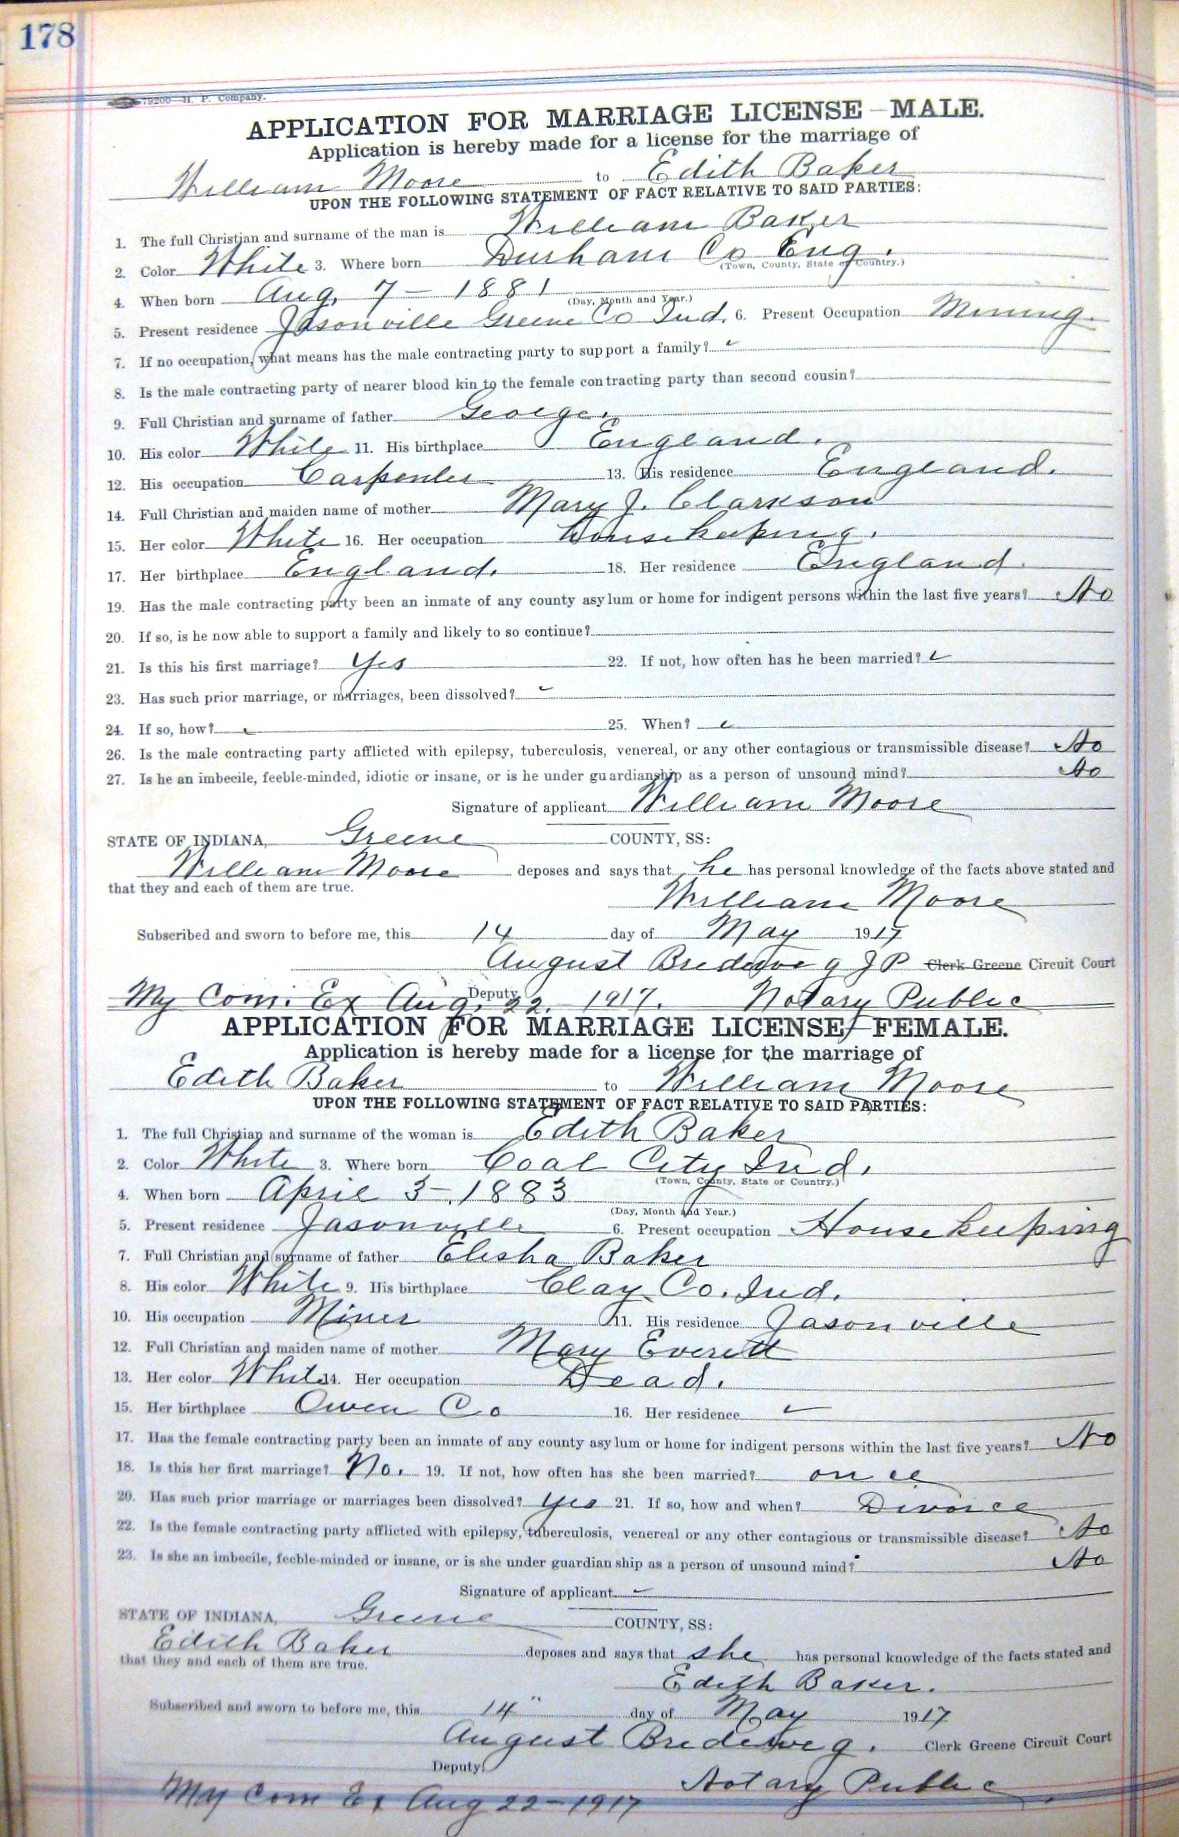 178
79200—H. P. Company.
APPLICATION FOR MARRIAGE LICENSE—MALE.
Application is hereby made for a license for the marriage of
William Moore to Edith Baker
UPON THE FOLLOWING STATEMENT OF FACT RELATIVE TO SAID PARTIES:
1. The full Christian and surname of the man is William Baker
2. Color White 3. Where born Durham Co Eng.
(Town, County, State or Country.)
4. When born Aug. 7 - 1881
(Day, Month and Year.)
5. Present residence Jasonville Greene Co Ind. 6. Present Occupation Mining.
7. If no occupation, what means has the male contracting party to support a family? ✓
8. Is the male contracting party of nearer blood kin to the female contracting party than second cousin?
9. Full Christian and surname of father George.
10. His color White 11. His birthplace England.
12. His occupation Carpenter 13. His residence England.
14. Full Christian and maiden name of mother Mary J. Clarkson
15. Her color White 16. Her occupation Housekeeping.
17. Her birthplace England. 18. Her residence England.
19. Has the male contracting party been an inmate of any county asylum or home for indigent persons within the last five years? No
20. If so, is he now able to support a family and likely to so continue?
21. Is this his first marriage? Yes 22. If not, how often has he been married? ✓
23. Has such prior marriage, or marriages, been dissolved? ✓
24. If so, how? ✓ 25. When? ✓
26. Is the male contracting party afflicted with epilepsy, tuberculosis, venereal, or any other contagious or transmissible disease? No
27. Is he an imbecile, feeble-minded, idiotic or insane, or is he under guardianship as a person of unsound mind? No
Signature of applicant William Moore
STATE OF INDIANA, Greene COUNTY, SS:
William Moore deposes and says that he has personal knowledge of the facts above stated and
that they and each of them are true.
William Moore
Subscribed and sworn to before me, this 14 day of May 1917
August Bredeweg J P Clerk Greene Circuit Court
Deputy
My Com. Ex Aug. 22. 1917. Notary Public
APPLICATION FOR MARRIAGE LICENSE—FEMALE.
Application is hereby made for a license for the marriage of
Edith Baker to William Moore
UPON THE FOLLOWING STATEMENT OF FACT RELATIVE TO SAID PARTIES:
1. The full Christian and surname of the woman is Edith Baker
2. Color White 3. Where born Coal City Ind.
(Town, County, State or Country.)
4. When born April 3-1883
(Day, Month and Year.)
5. Present residence Jasonville 6. Present occupation Housekeeping
7. Full Christian and surname of father Elisha Baker
8. His color White 9. His birthplace Clay Co. Ind.
10. His occupation Miner 11. His residence Jasonville
12. Full Christian and maiden name of mother Mary Everett
13. Her color White 14. Her occupation Dead.
15. Her birthplace Owen Co 16. Her residence ✓
17. Has the female contracting party been an inmate of any county asylum or home for indigent persons within the last five years? No
18. Is this her first marriage? No. 19. If not, how often has she been married? once
20. Has such prior marriage or marriages been dissolved? Yes 21. If so, how and when? Divorce
22. Is the female contracting party afflicted with epilepsy, tuberculosis, venereal or any other contagious or transmissible disease? No
23. Is she an imbecile, feeble-minded or insane, or is she under guardianship as a person of unsound mind? No
Signature of applicant ✓
STATE OF INDIANA, Greene COUNTY, SS:
Edith Baker deposes and says that she has personal knowledge of the facts stated and
that they and each of them are true.
Edith Baker.
Subscribed and sworn to before me, this 14" day of May 1917
August Bredeweg. Clerk Greene Circuit Court
Deputy.
Notary Public.
My Com Ex Aug 22-1917